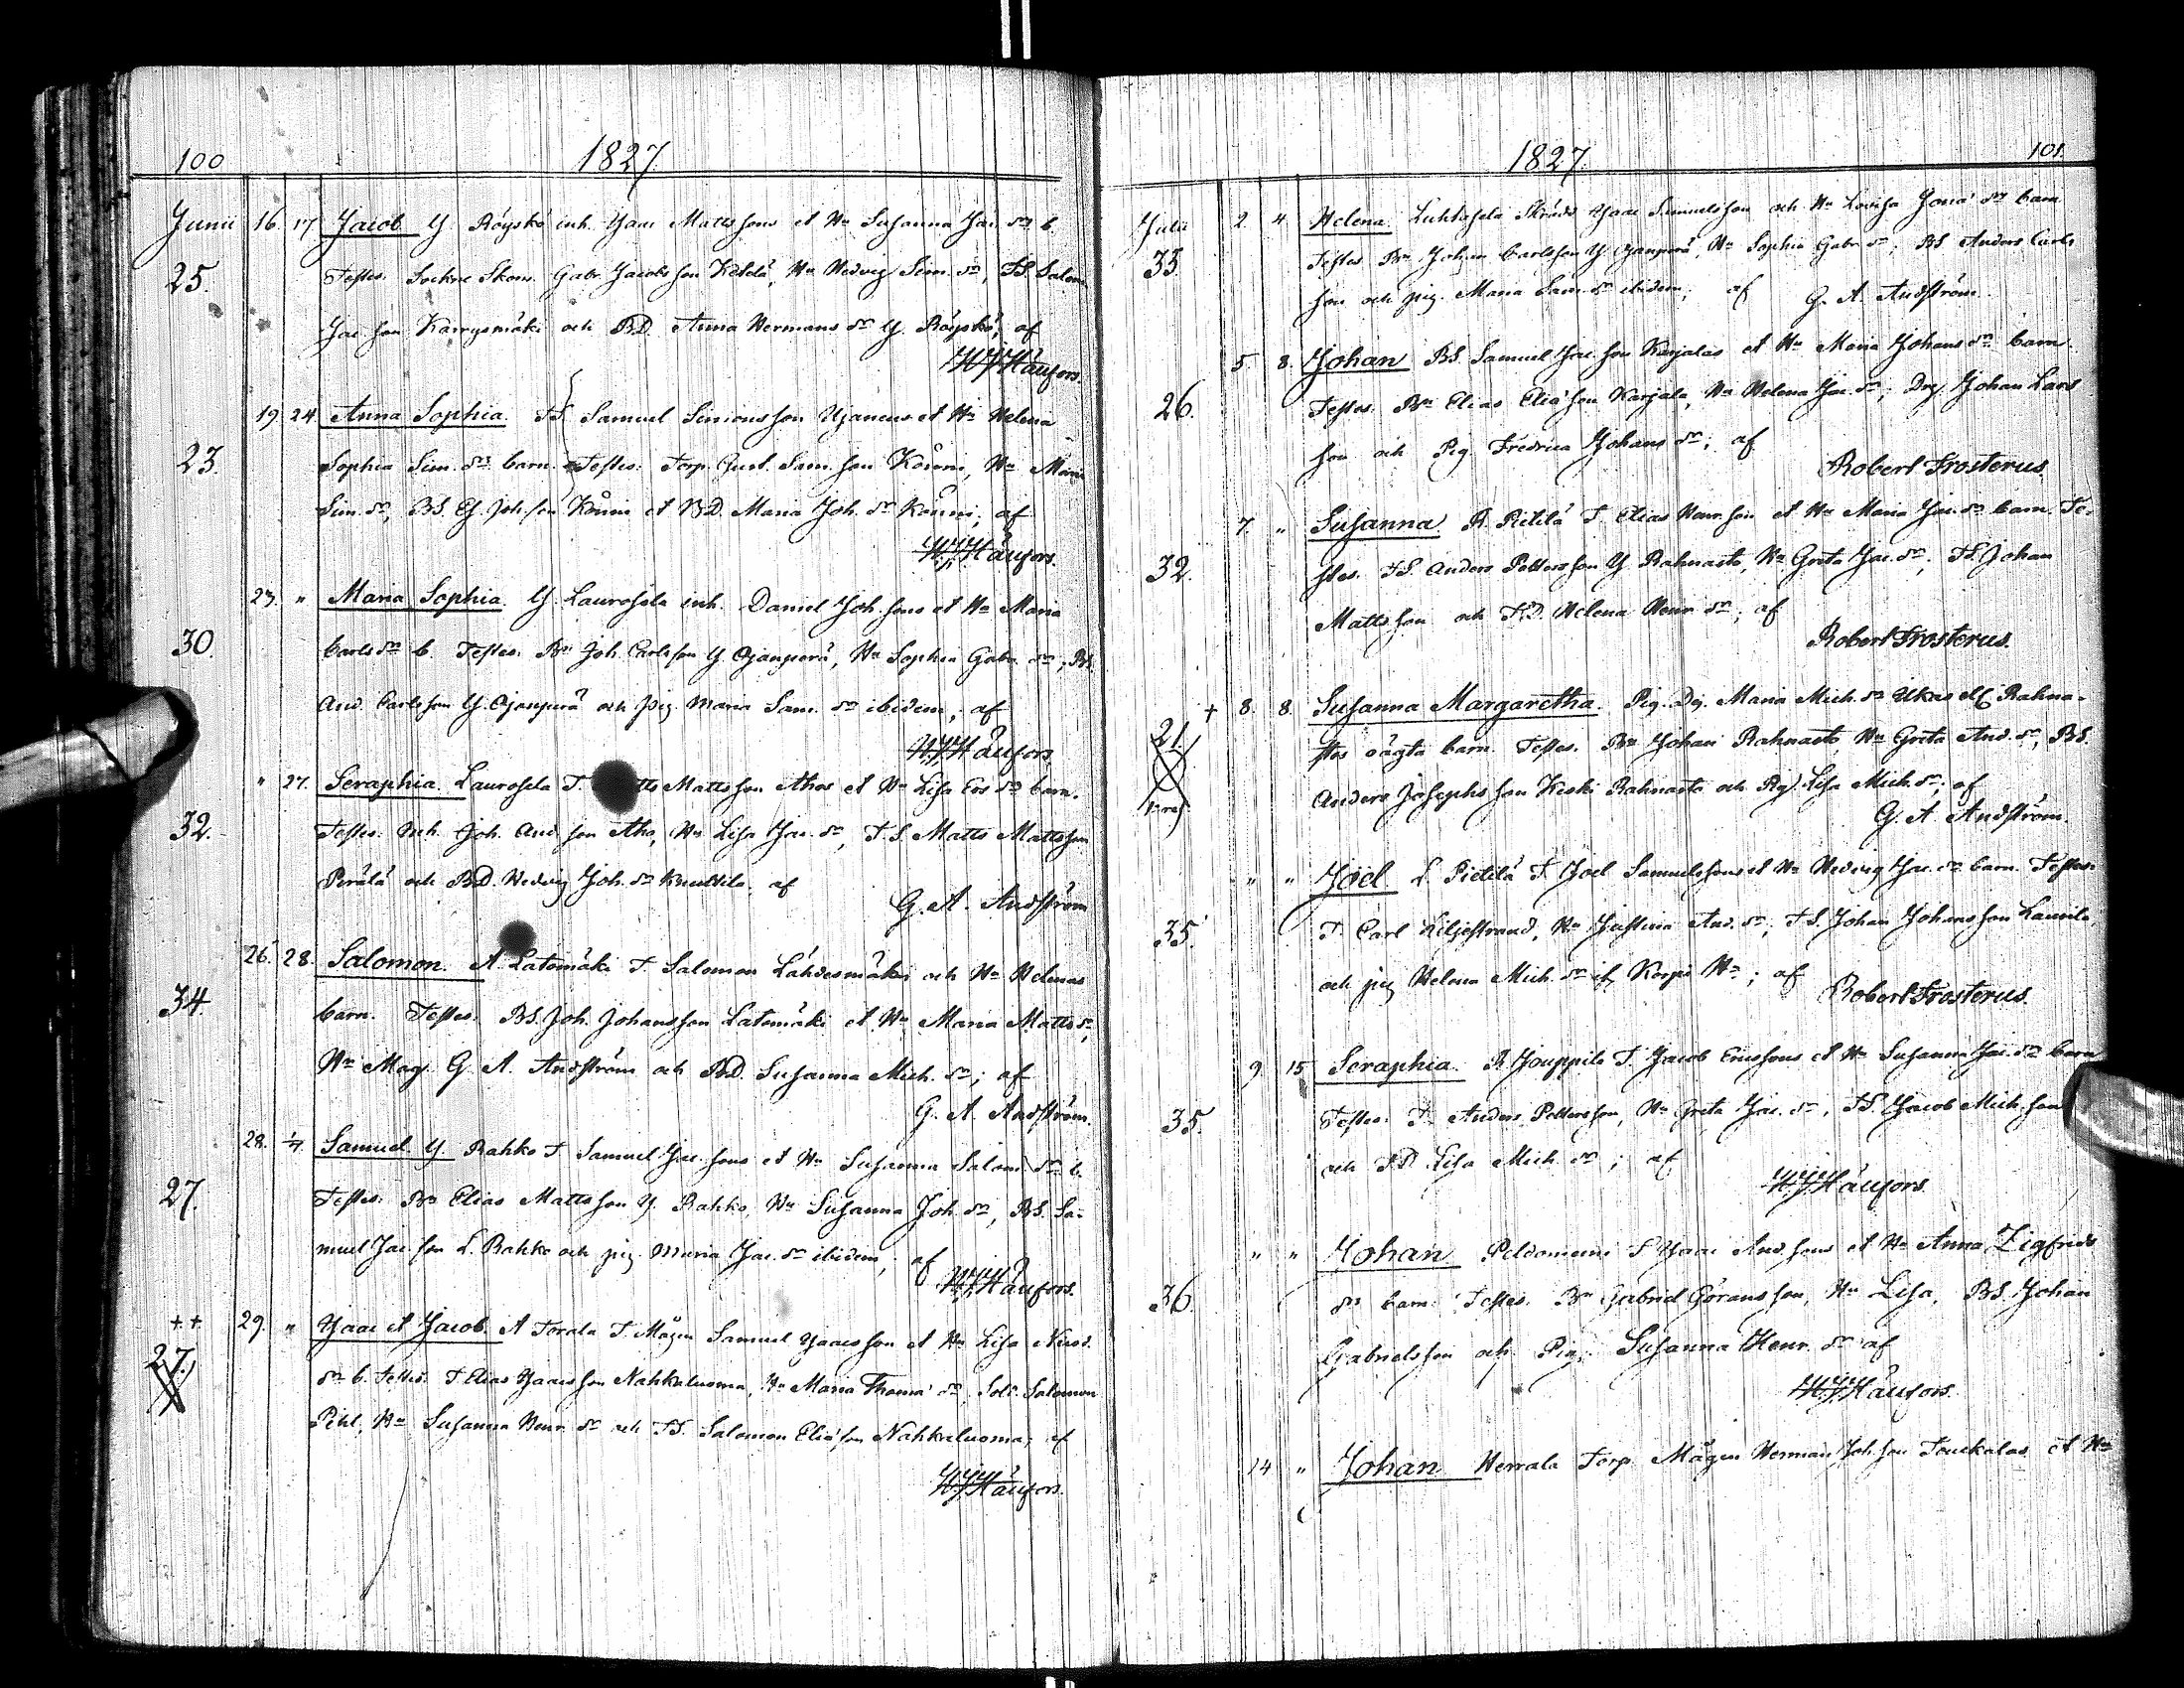 100
1827
Junii 16. 17 Jacob Y. Röyskö inh. Isaac Mattssons et Hu Susanna Jac. dr b.
25.
Testes. Sockne Skom. Gabr. Jacobsson Ketola, Hu Hedvig Sim. dr, TS. Salom.
Jac. son Karrysmäki och BD. Anna Hermans dr Y. Röyskö, af
Håufors.
19. 24. Anna Sophia. TS Samuel Simonsson Ujaneus et Hu Helena
23.
Sophia Sim. drs barn. Testes: Torp. Gust. Sam. son Kouni, Hu Maria
Sim. dr, BS. Joh. son Kouni et BD. Maria Joh. dr Kouni; af
Håufors.
23. " Maria Sophia. Y. Laurosela inh. Daniel Joh. sons et Hu Maria
30.
Carls dr b. Testes. Bn Joh. Carlsson Y. Ojanperä, Hu Sophia Gabr. dr, BS.
And. Carlsson Y. Ojanperä och pig. Maria Sam. dr ibidem, af
Håufors.
" 27. Seraphia. Laurosela T. Mattsson Ahos et Hu Lisa Ers dr barn.
32.
Testes. Inh. Joh. And. son Aho, Hu Lisa Jac. dr, T.S. Matts Mattsson
Perälä och BD. Hedvig Joh. dr Knuuttila, af
G. A. Andström
26. 28. Salomon. A. Latomäki T. Salomon Lähdesmäkis och Hu Helenas
34.
barn. Testes. BS. Joh. Johansson Latomäki et Hu Maria Matts dr,
Hr Mag. G. A. Andström och BD. Susanna Mich. dr; af
G. A. Andström.
28. 1/7 Samuel Y. Rahko T. Samuel Jac. sons et Hu Susanna Salom. dr b.
27.
Testes. Bn Elias Mattsson Y. Rahko, Hu Susanna Joh. dr, BS. Sa-
muel Jac. son L. Rahko och pig. Maria Jac. dr ibidem; af
Håufors.
++ 29. " Isaac et Jacob. A Torala T. Mågen Samuel Isacsson et Hu Lisa
27.
dr b. Testes. T. Elias Isacsson Nahkaluoma, Hu Maria Thoma dr, Sold. Salomon
Pihl, Hu Susanna Henr. dr och TS. Salomon Eliæson Nahkaluoma; af
Håufors.
1827.
101.
Julii 2. 4. Helena. Luhtasela Skrädd. Isaac Samuelsson och Hu Lovisa Jona dr barn
35.
Testes Bn Johan Carlsson Y. Ojanperä, Hu Sophia Gabr. dr; BS Anders Carls
son och pig. Maria Sam. dr ibidem; af G. A. Andström
5. 8. Johan BS. Samuel Jac. son Karjalas et Hu Maria Johans dr barn
26.
Testes. Bn Elias Eliæson Karjala, Hu Helena Jac. dr; Drg. Johan Lars
son och Pig. Fredrica Johans dr; af
Robert Frosterus.
7. " Susanna A. Pietilä T. Elias Henr. son et Hu Maria Jac. dr barn. Te-
32.
stes. TS. Anders Pettersson Y Rahnasto, Hu Greta Jac. dr, TS. Johan
Mattsson och TD. Helena Henr. dr; af
Robert Frosterus.
+ 8. 8. Susanna Margaretha. Pig. Maria Mich. dr Rahna-
21
stos oägta barn. Testes. Bn Johan Rahnasto, Hu Greta And. dr, BS.
Anders Josephsson Keski Rahnasto och Pig. Lisa Mich. dr; af
G. A Andström
" " Joel L. Pietilä T. Joel Samuelssons et Hu Hedvig Jac. dr barn. Testes.
35.
T. Carl Liljestrand, Hu Justina And. dr; TS. Johan Johansson Laurila,
och pig Helena Mich. dr if. Korpi; af Robert Frosterus.
9 15 Seraphia. A Jouppila T. Jacob Ericssons et Hu Susanna Jac. dr barn
35.
Testes. T. Anders Pettersson, Hu Greta Jac. dr, TS. Jacob Mich. son
och TD Lisa Mich. dr; af
Håufors.
" " Johan Peldoniemi T Isaac And. sons et Hu Anna Zigfrids
36.
drs barn. Testes. Bn Gabriel Göransson, Hu Lisa, BS. Johan
Gabrielsson och Pig. Susanna Henr. dr af
Håufors.
14 " Johan Herrala Torp. Mågen Herman Joh. son Touckolas et Hu